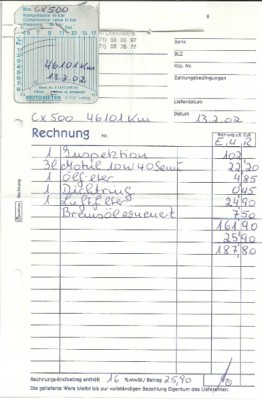 No. CX500
46101 Km
13.2.02
Bank
BLZ
Konto-Nr.
Zahlungsbedingungen
Lieferdatum
CX 500 46101 Km
Datum 13.2.02
Rechnung
E.U.R
1 Inspektion 102,-
3l Motul 10W40 Semi 22,20
1 Ölfilter 4,85
1 Dichtring 0,45
1 Luftfilter 24,90
Bremsöl erneuert 7,50
161,90
25,90
187,80
Rechnungs-Endbetrag enthält 16 % MWSt / Betrag 25,90
Die gelieferte Ware bleibt bis zur vollständigen Bezahlung Eigentum des Lieferanten.